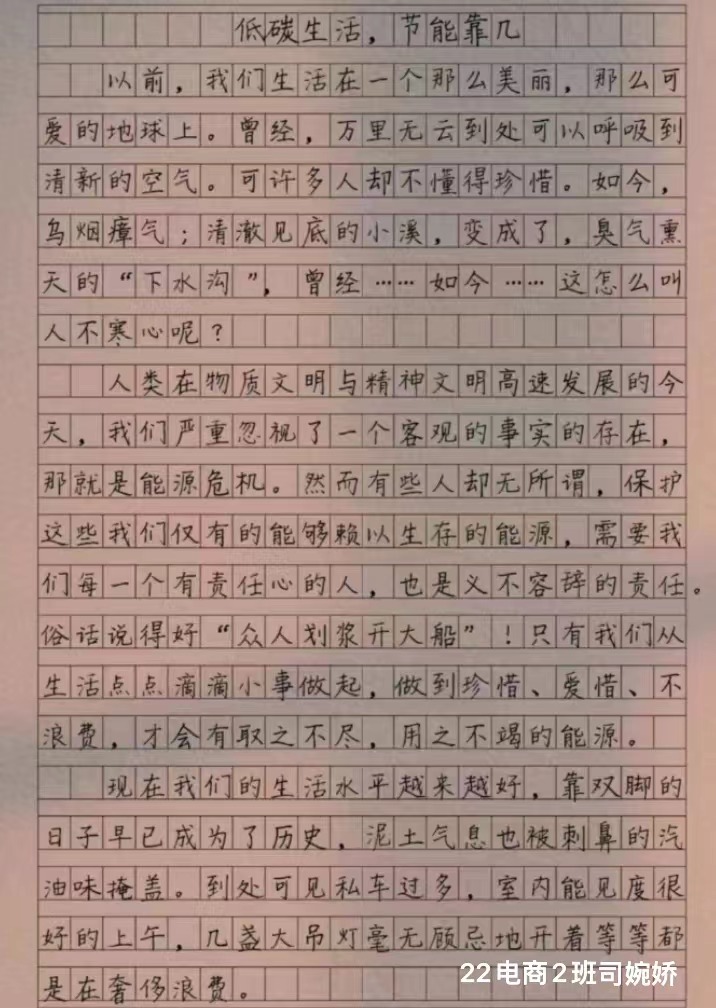 低碳生活，节能靠几
以前，我们生活在一个那么美丽，那么可
爱的地球上。曾经，万里无云到处可以呼吸到
清新的空气。可许多人却不懂得珍惜。如今，
乌烟瘴气；清澈见底的小溪，变成了，臭气熏
天的“下水沟”，曾经……如今……这怎么叫
人不寒心呢？
人类在物质文明与精神文明高速发展的今
天，我们严重忽视了一个客观的事实的存在，
那就是能源危机。然而有些人却无所谓，保护
这些我们仅有的能够赖以生存的能源，需要我
们每一个有责任心的人，也是义不容辞的责任。
俗话说得好“众人划浆开大船”！只有我们从
生活点点滴滴小事做起，做到珍惜、爱惜、不
浪费，才会有取之不尽，用之不竭的能源。
现在我们的生活水平越来越好，靠双脚的
日子早已成为了历史，泥土气息也被刺鼻的汽
油味掩盖。到处可见私车过多，室内能见度很
好的上午，几盏大吊灯毫无顾忌地开着等等都
是在奢侈浪费。
22电商2班司婉娇